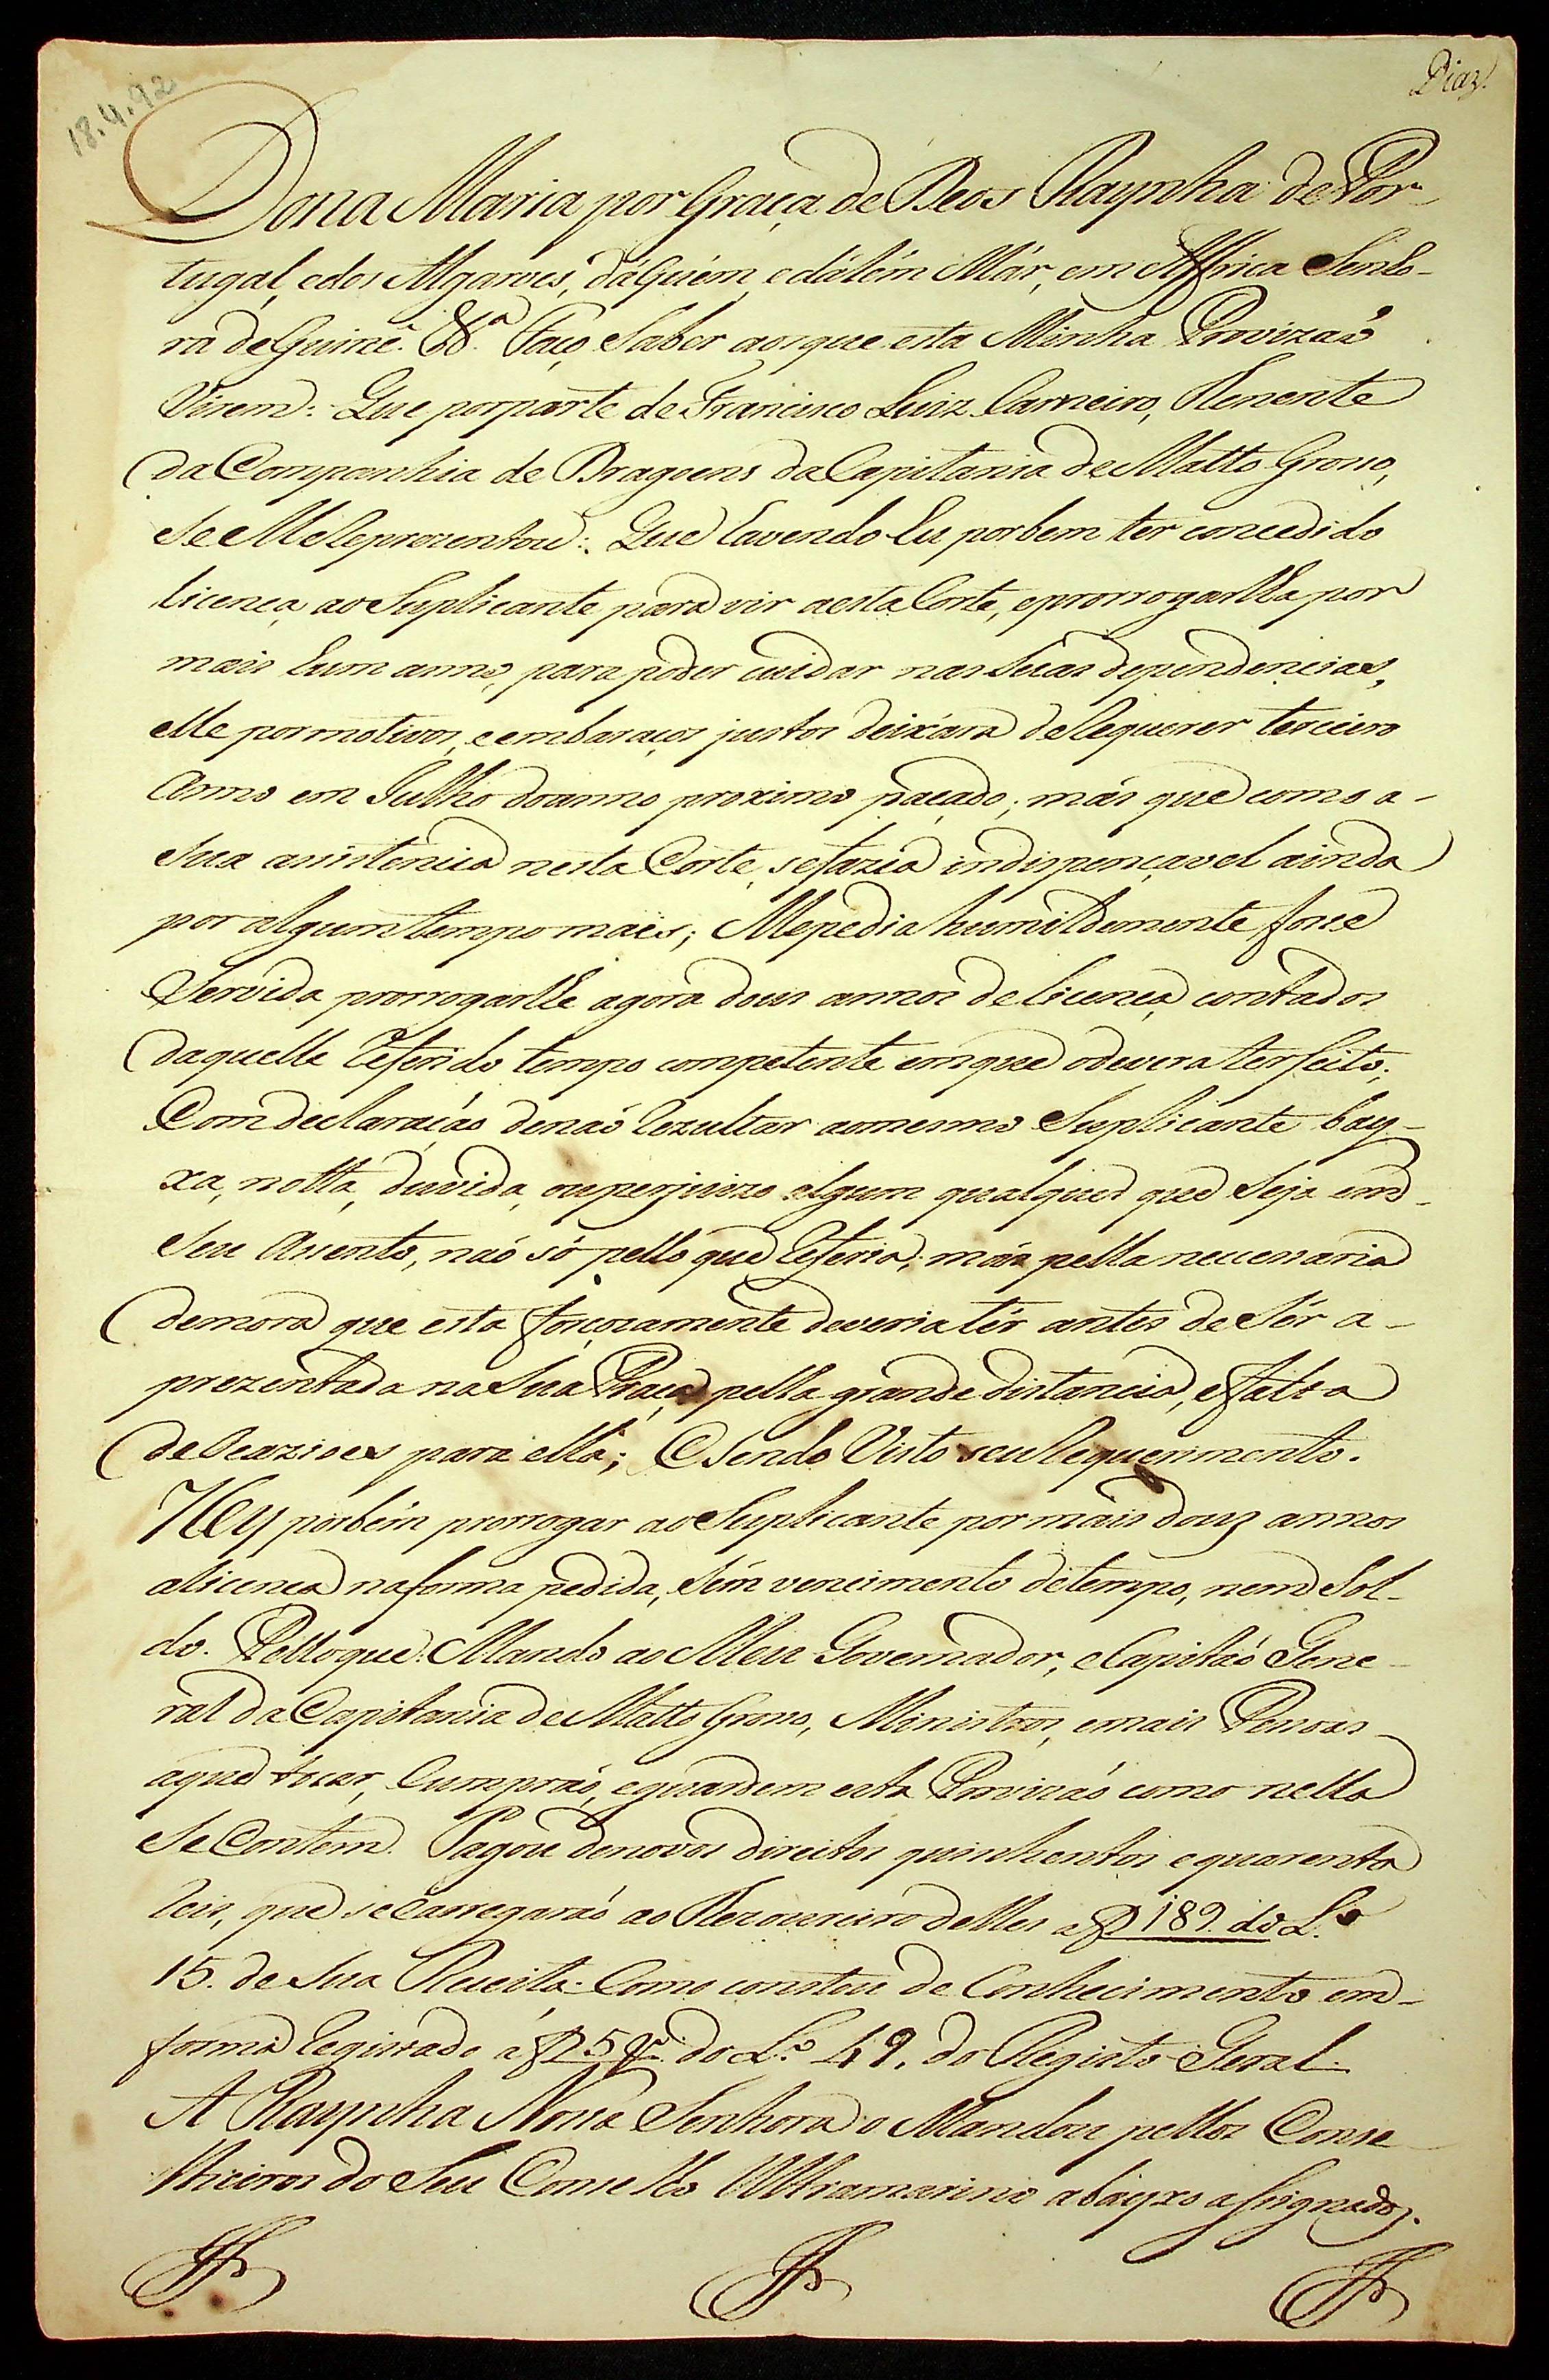 18.4.92
Diaz.
Dona Maria por Graça de Deos Raynha de Por-
tugal, e dos Algarves, dáquém, e dálém Már, em Affrica Senho-
ra de Guiné. &.ª Faço Saber aos que esta Minha Provizaõ
Virem: Que por parte de Francisco Luiz Carneiro, Tenente
da Companhia de Dragoens da Capitania de Matto Grosso,
se Me Reprezentou: Que havendo Eu por bem ter concedido
licença ao Suplicante para vir a esta Corte, e prorrogarlha por
mais hum anno, para poder cuidar nas Suas dependencias,
elle por motivos, e embaraços justos deixára de Requerer terceiro
Anno em Julho do anno proximo paçado; más que como a-
Sua assistencia nesta Corte, se fazia indispençavel ainda
por algum tempo mais; Me pedia humildemente fosse
Servida prorrogarlhe agora dous annos de licença, contados
daquelle Referido tempo competente em que o devera ter feito;
Com declaraçáo de naó Rezultar ao mesmo Suplicante bay-
xa, notta, duvida, ou perjuizo algum qualquer que Seja em-
Seu Assento, naó só pello que Referia; más pella neccessaria
demora que esta forçozamente deveria tér antes de Sér a-
prezentada na Sua Praça pella grande distancia, e falta
de Ocazioes para ella; E sendo Visto seu Requerimento.
Hey por bém prorrogar ao Suplicante por mais douz annos
a licença na forma pedida, Sém vencimento de tempo, nem Sol-
do. Pello que: Mando ao Meu Governador, e Capitaó Gene-
ral da Capitania de Matto Grosso, Ministros, e mais Pessoas
a que tocar, Cumpraó, e guardem esta Provizaó como nella
Se Contem. Pagou de novos direitos quinhentos e quarenta
Reis, que se Carregaraó ao Thezoureiro delles a f 189. do L.º
15. de Sua Receita. Como constou de Conhecimento em-
forma Registado á f 25 do L.º 49. do Registo Geral.
A Raynha Nossa Senhora o Mandou pellos Conse
lheiros do Seu Conselho Ultramarino abayxo assignados.